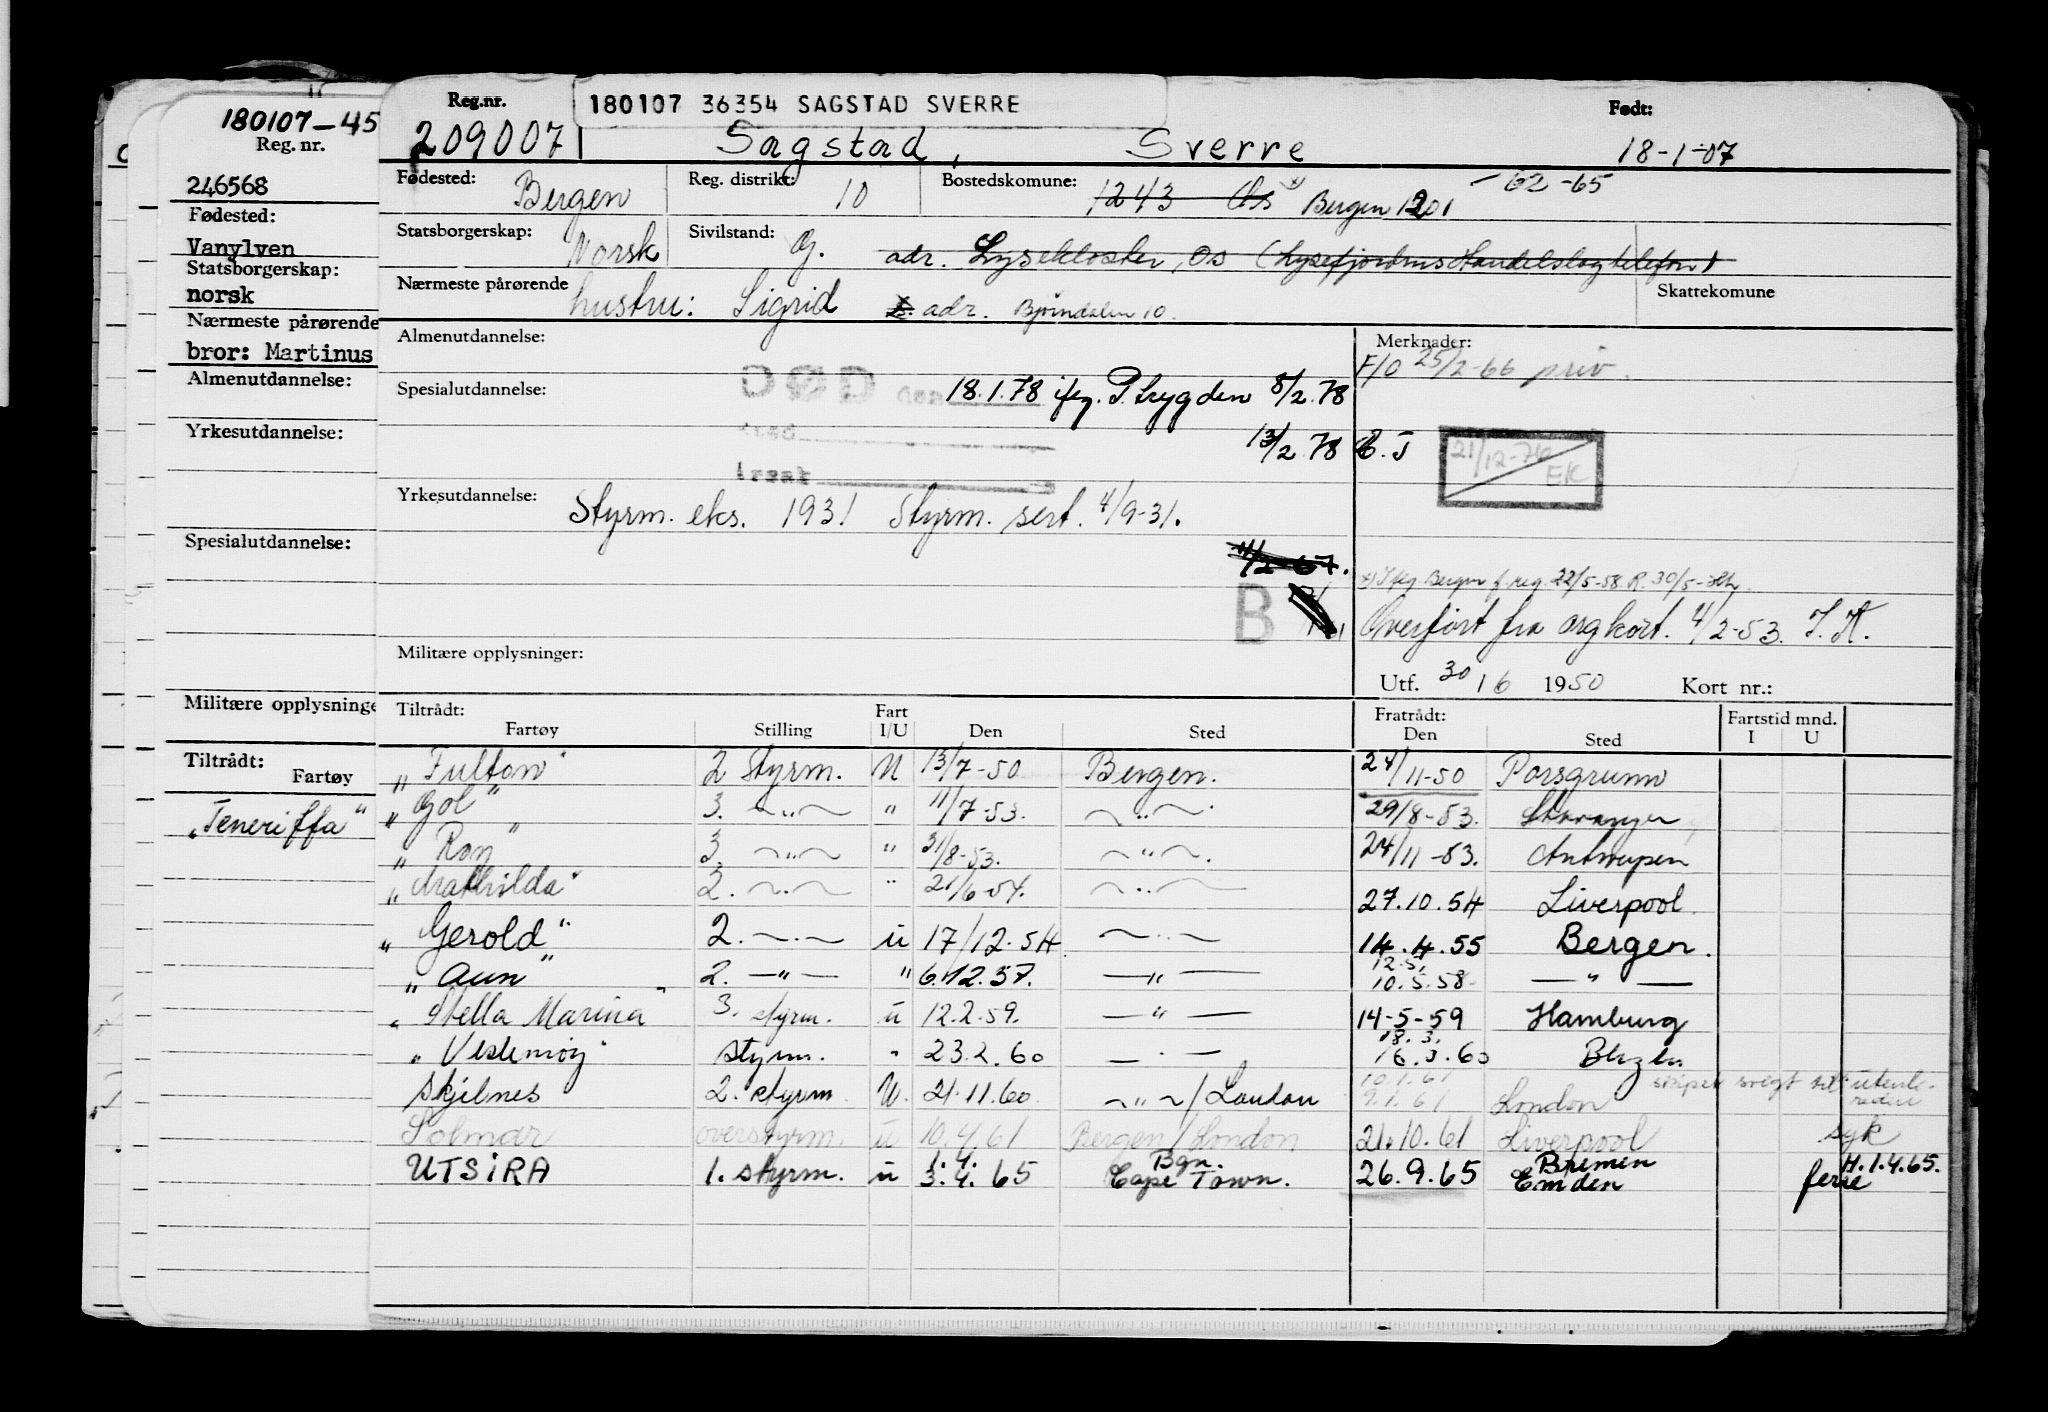 180107-45
Reg. nr.
246568
Fødested:
Vanylven
Statsborgerskap:
norsk
Nærmeste pårørende
bror: Martinus
Almenutdannelse:
Yrkesutdannelse:
Spesialutdannelse:
Militære opplysninge
Tiltrådt:
Fartøy
"Teneriffa"
Reg.nr. 180107 36354 SAGSTAD SVERRE Født:
209007 Sagstad, Sverre 18-1-07
Fødested: Bergen Reg. distrikt: 10 Bostedskomune: 1243 Os x) Bergen 1201 - 62-65
Statsborgerskap: Norsk Sivilstand: G. adr. Lysekloster, Os (Lysefjordens Handelslag telefon)
Nærmeste pårørende hustru: Sigrid adr. Bjørndalen 10. Skattekomune
Almenutdannelse: Merknader:
F/O 25/2-66 priv.
Spesialutdannelse: DØD den 18.1.78 iføg. P.trygden 8/2.78
sted 13/2.78 E.J 21/12-76 EK
årsak
Yrkesutdannelse: Styrm. eks. 1931 Styrm. sert. 4/9-31.
4/2-67.
x) Iflg Bergen f. reg. 22/5-58 R. 30/5-
B
Overført fra org kort. 4/2-53. T.K.
Militære opplysninger:
Utf. 30/6 1950 Kort nr.:
Tiltrådt: Fart Fratrådt: Fartstid mnd.
Fartøy Stilling I/U Den Sted Den Sted I U
"Fulton" 2 Styrm. U 13/7-50 Bergen. 24/11-50 Porsgrunn
"Gol" 3. ~"~ " 11/7-53. ~"~. 29/8-53. Stavanger
"Ron" 3. ~"~ " 31/8-53. ~"~. 24/11-53. Antwerpen
"Mathilda" 2. ~"~ " 21/6-54. ~"~ 27.10.54 Liverpool.
"Gerold" 2. ~"~ u 17/12.54 ~"~ 14.4.55 Bergen.
"Aun" 2. —"— " 6.12.57. —"— 12.5. 10.5.58- —"—
"Stella Marina" 3. styrm. u 12.2.59. —"— 14-5-59 Hamburg
"Vestemøy" styrm. " 23.2.60 —"— 18.3. 16.3.60
Skjelnes 2. styrm U. 21.11.60. ~"~/London 10.1.61 9.1.61 London skipet solgt til utenl. rederi
Solmar overstyrm. u 10.4.61 Bergen/London 21.10.61 Liverpool syk
UTSIRA 1. styrm. u 1.4. 3.4.65 Bgn. Cape Town. 26.9.65 Bremen Emden ferie H.1.4.65.